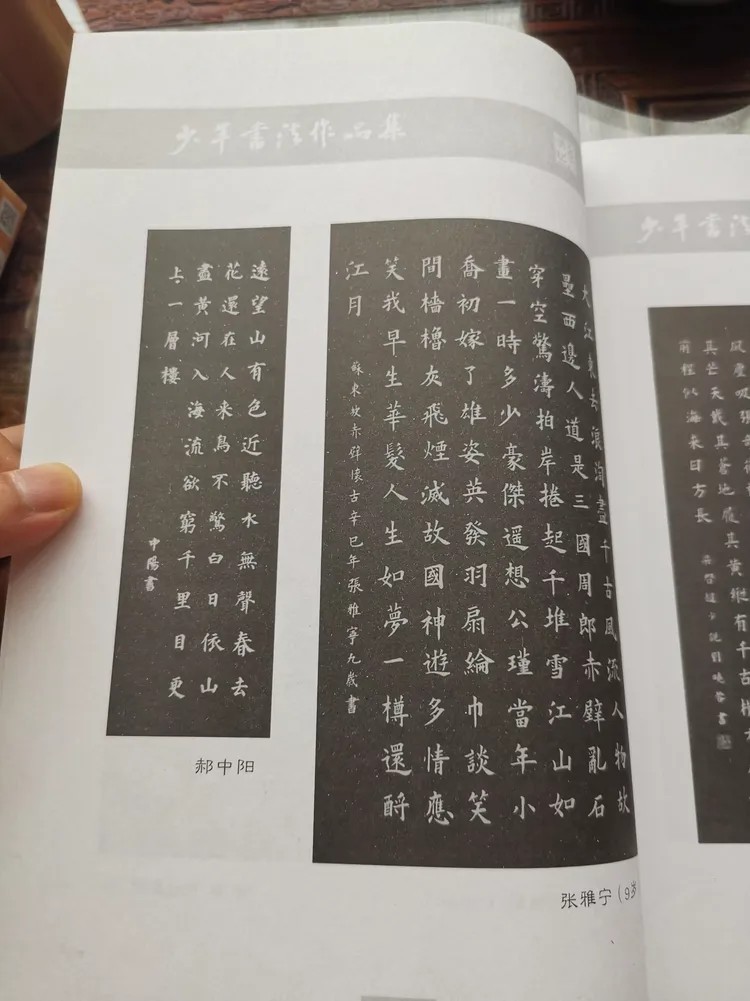 少年書法作品集
遠望山有色近聽水無聲春去
花還在人来鳥不驚白日依山
盡黄河入海流欲窮千里目更
上一層樓
中陽書
郝中阳
大江東去浪淘盡千古風流人物故
壘西邊人道是三國周郎赤壁亂石
穿空驚濤拍岸捲起千堆雪江山如
畫一時多少豪傑遥想公瑾當年小
喬初嫁了雄姿英發羽扇綸巾談笑
間檣櫓灰飛煙滅故國神遊多情應
笑我早生華髮人生如夢一樽還酹
江月
蘇東坡赤壁懷古辛巳年張雅寧九歲書
张雅宁（9岁
少年書法
其芒天戴其蒼地履其黄縱有千古橫
前程似海来日方長